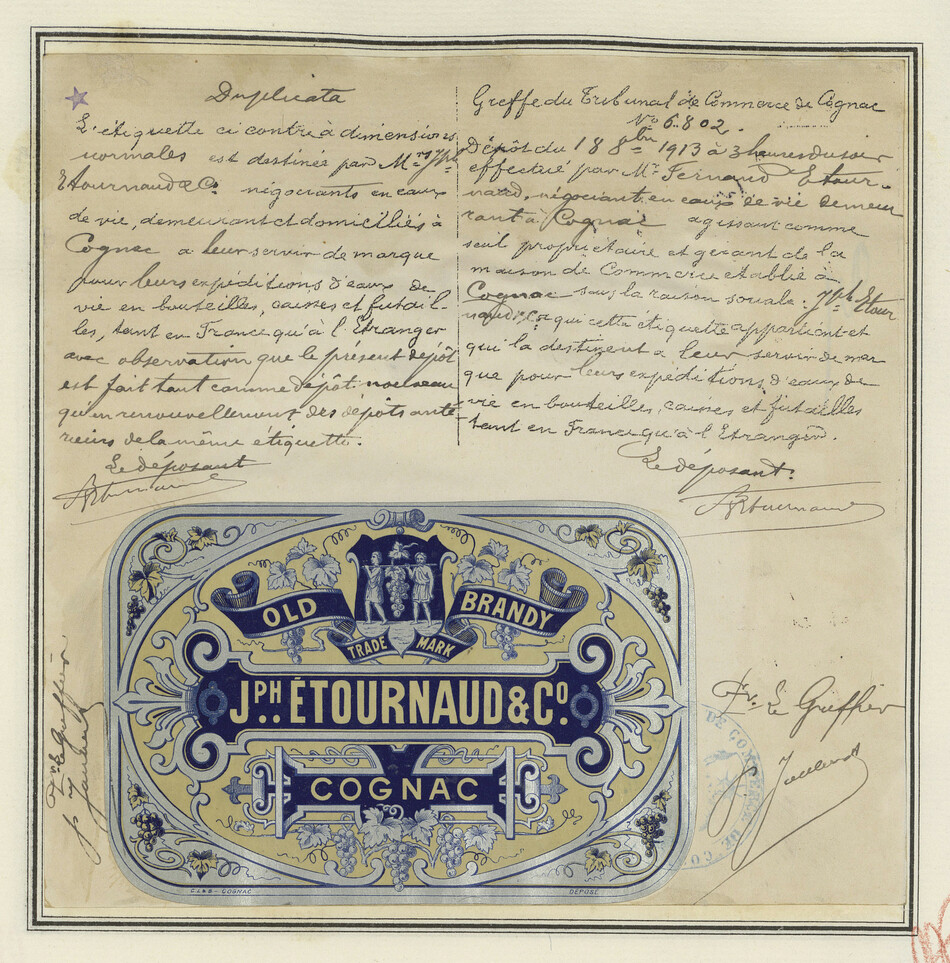 Duplicata
L'étiquette ci contre à dimensions
normales est destinée par Mrs Jph
Etournaud & Co négociants en eaux
de vie, demeurant et domiciliés à
Cognac a leur servir de marque
pour leurs expéditions d'eaux de
vie en bouteilles, caisses et futail-
les, tant en France qu'à l'Etranger
avec observation que le présent dépôt
est fait tant comme dépôt nouveau
qu'en renouvellement des dépôts anté-
rieurs de la même étiquette.
Le déposant
Greffe du Tribunal de Commerce de Cognac
No 6.802.
Dépôt du 18 8bre 1913 à 3 heures du soir
effectué par Mr Fernand Etour-
naud, négociant en eaux de vie demeu
rant à Cognac agissant comme
seul propriétaire et gérant de la
maison de Commerce établie à
Cognac sous la raison sociale: Jph Etour
naud & Co qui cette étiquette appartient et
qui la destinent a leur servir de mar
que pour leurs expéditions d'eaux de
vie en bouteilles, caisses et futailles
tant en France qu'à l'Etranger.
Le déposant.
OLD BRANDY
TRADE MARK
JPH. ÉTOURNAUD & CO.
COGNAC
COGNAC
DÉPOSÉ
Pr Le Greffier
Pr Le Greffier
DE COMMERCE DE CO